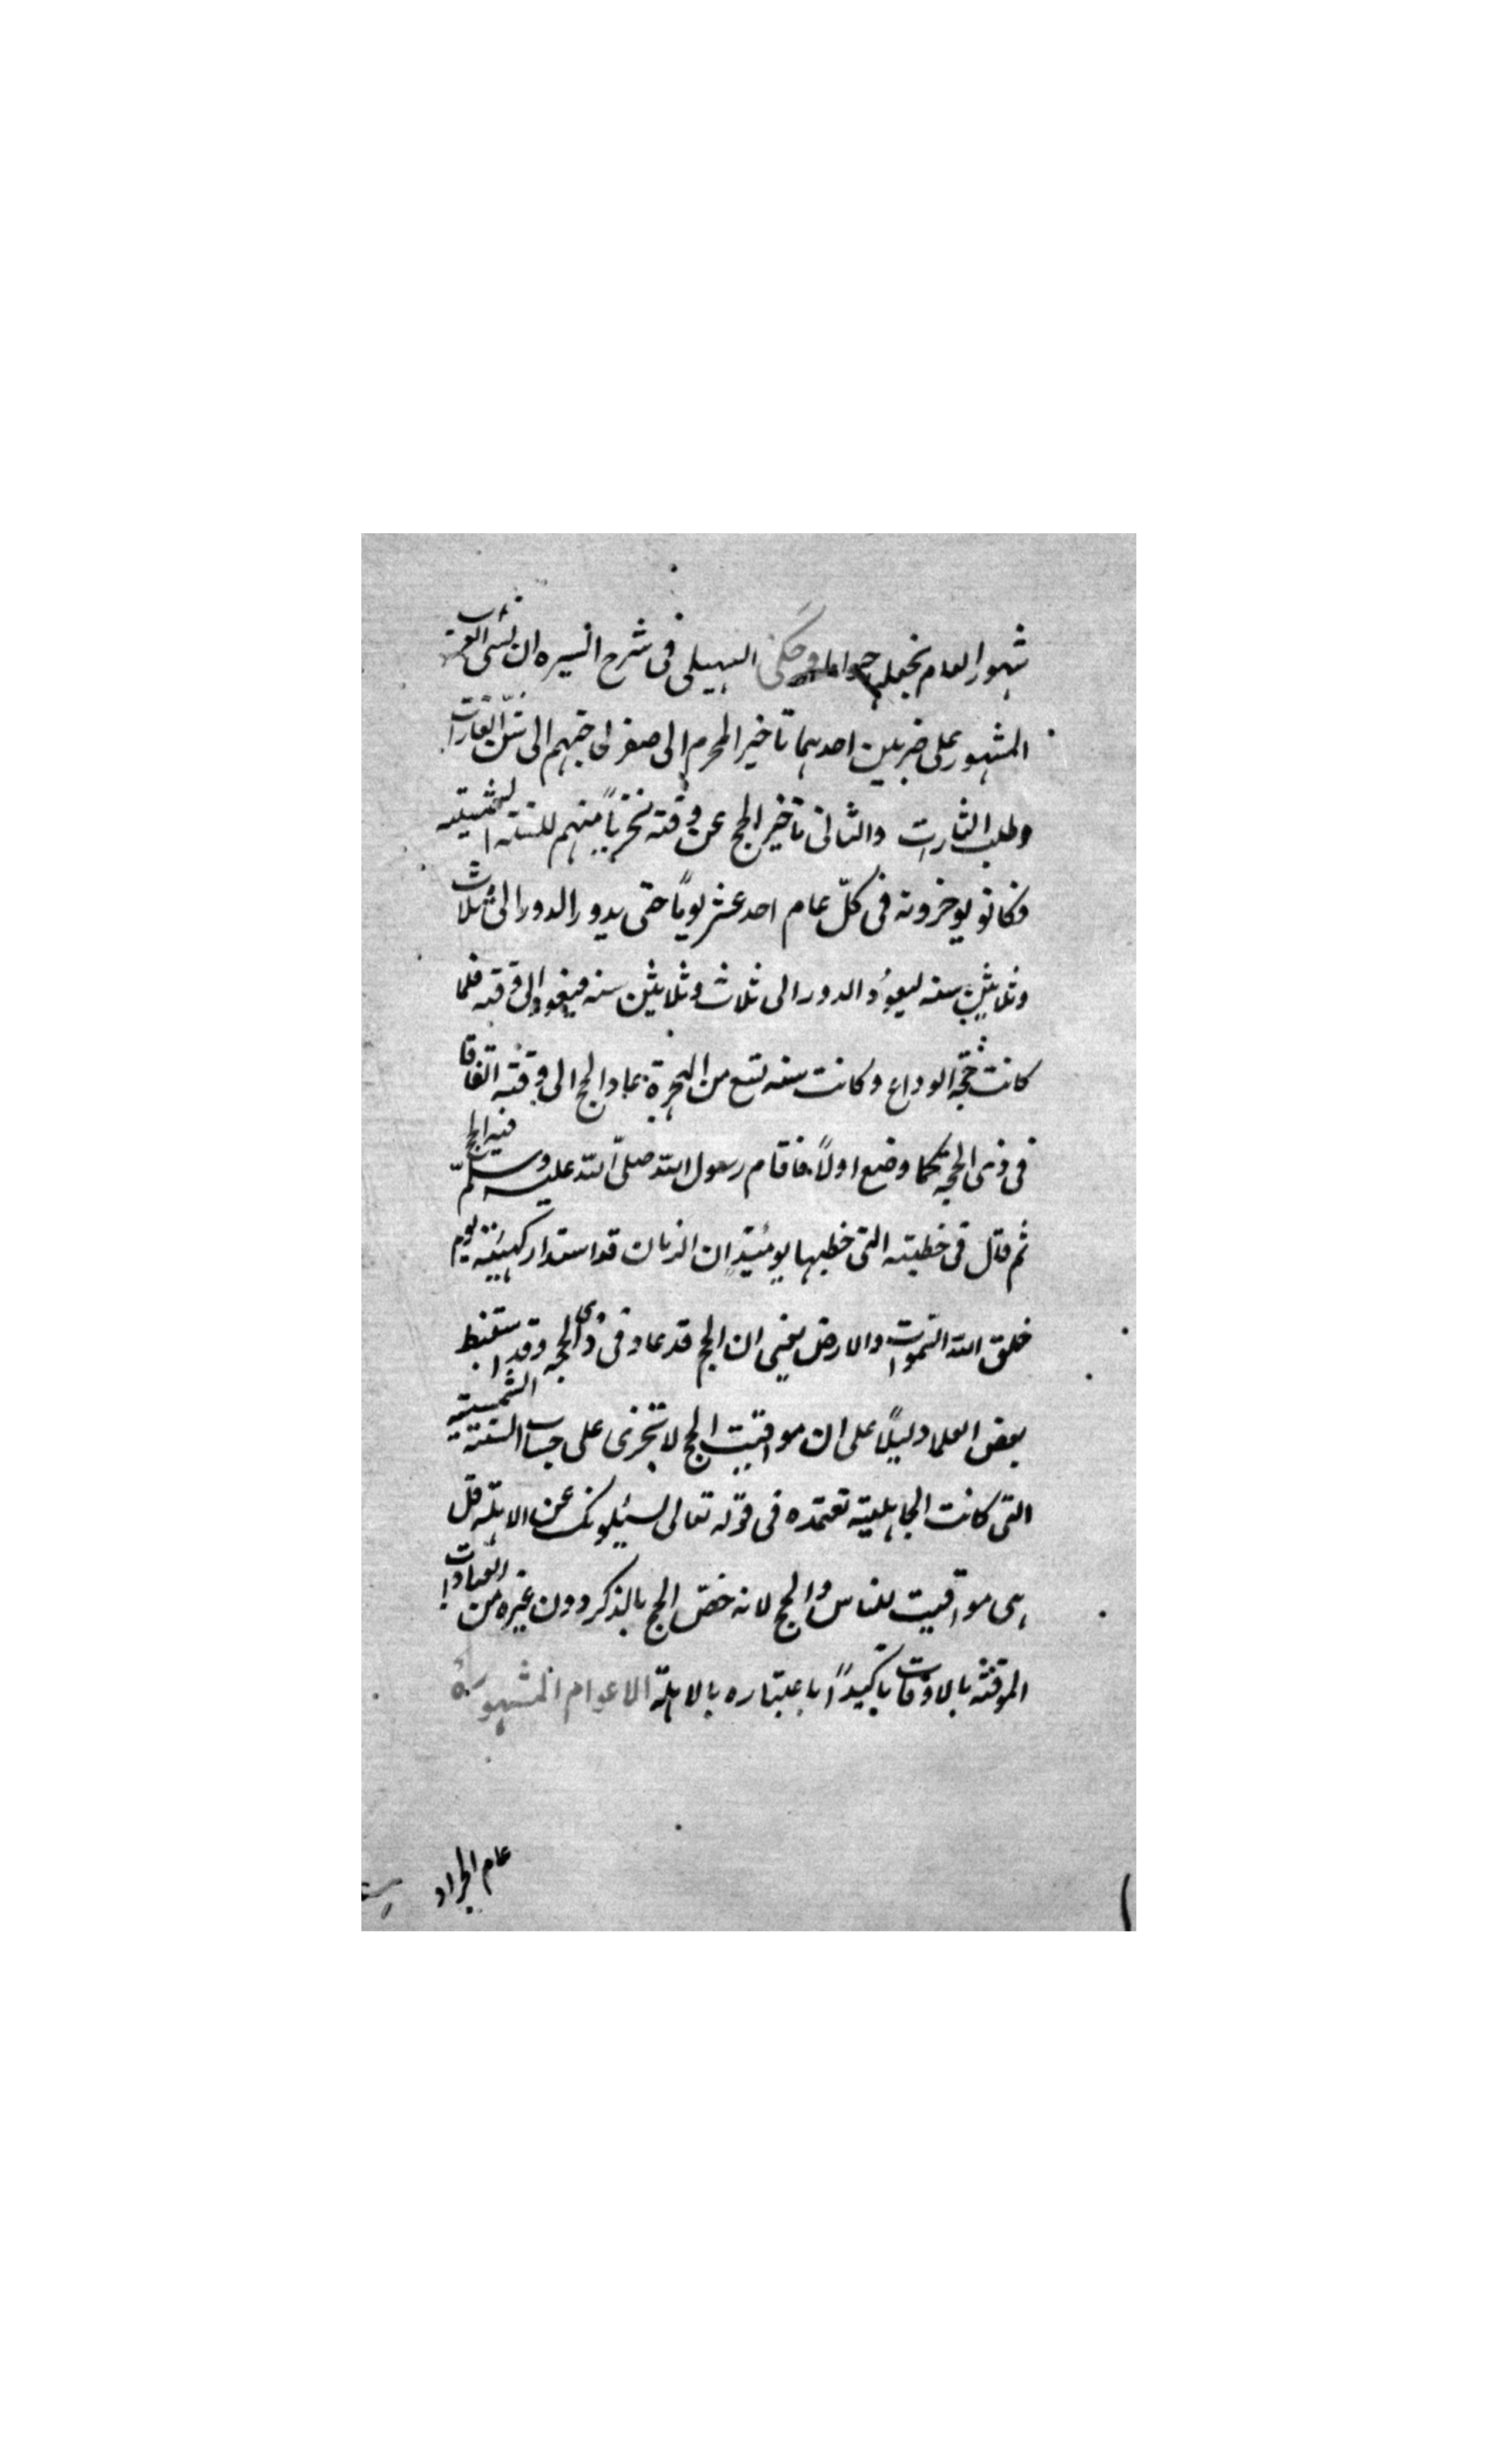 شهور العام فجعلها حراما وحكى السهيلى فى شرح السيره ان نسئ العرب
المشهور على ضربين احدهما تاخير المحرم الى صفر لحاجتهم الى شن الغارات
وطلب الثارت والثانى تاخير الحج عن وقته تحرّياً منهم للسنه الشمسيه
وكانو يوخرونه فى كلّ عام احد عشر يوماً حتى يدور الدور الى ثلاث
وثلاثين سنه ليعود الدور الى ثلاث وثلاثين سنه فيعود الى وقته فلما
كانت حجّة الوداع وكانت سنه تسع من الهجرة عاد الحج الى وقته اتفاقا
فى ذى الحجة كما وضع اولاً فاقام رسول الله صلّى الله عليه وسلّم فيه الحج
ثم قال فى خطبته التى خطبها يومئذٍ ان الزمان قد استدار كهيئته يوم
خلق الله السّموات والارض يعنى ان الحج قد عاد فى ذى الحجه وقد استنبط
بعض العلما دليلاً على ان مواقيت الحج لا تجرى على حساب السّنة الشمسية
التى كانت الجاهلية تعتمده فى قوله تعالى يسئلونك عن الاهلّه قل
هى مواقيت للناس والحج لانه خصّ الحج بالذكر دون غيره من العبادات
الموقته بالاوقات تاكيداً باعتباره بالاهلّة الاعوام المشهورة
عام الجراد